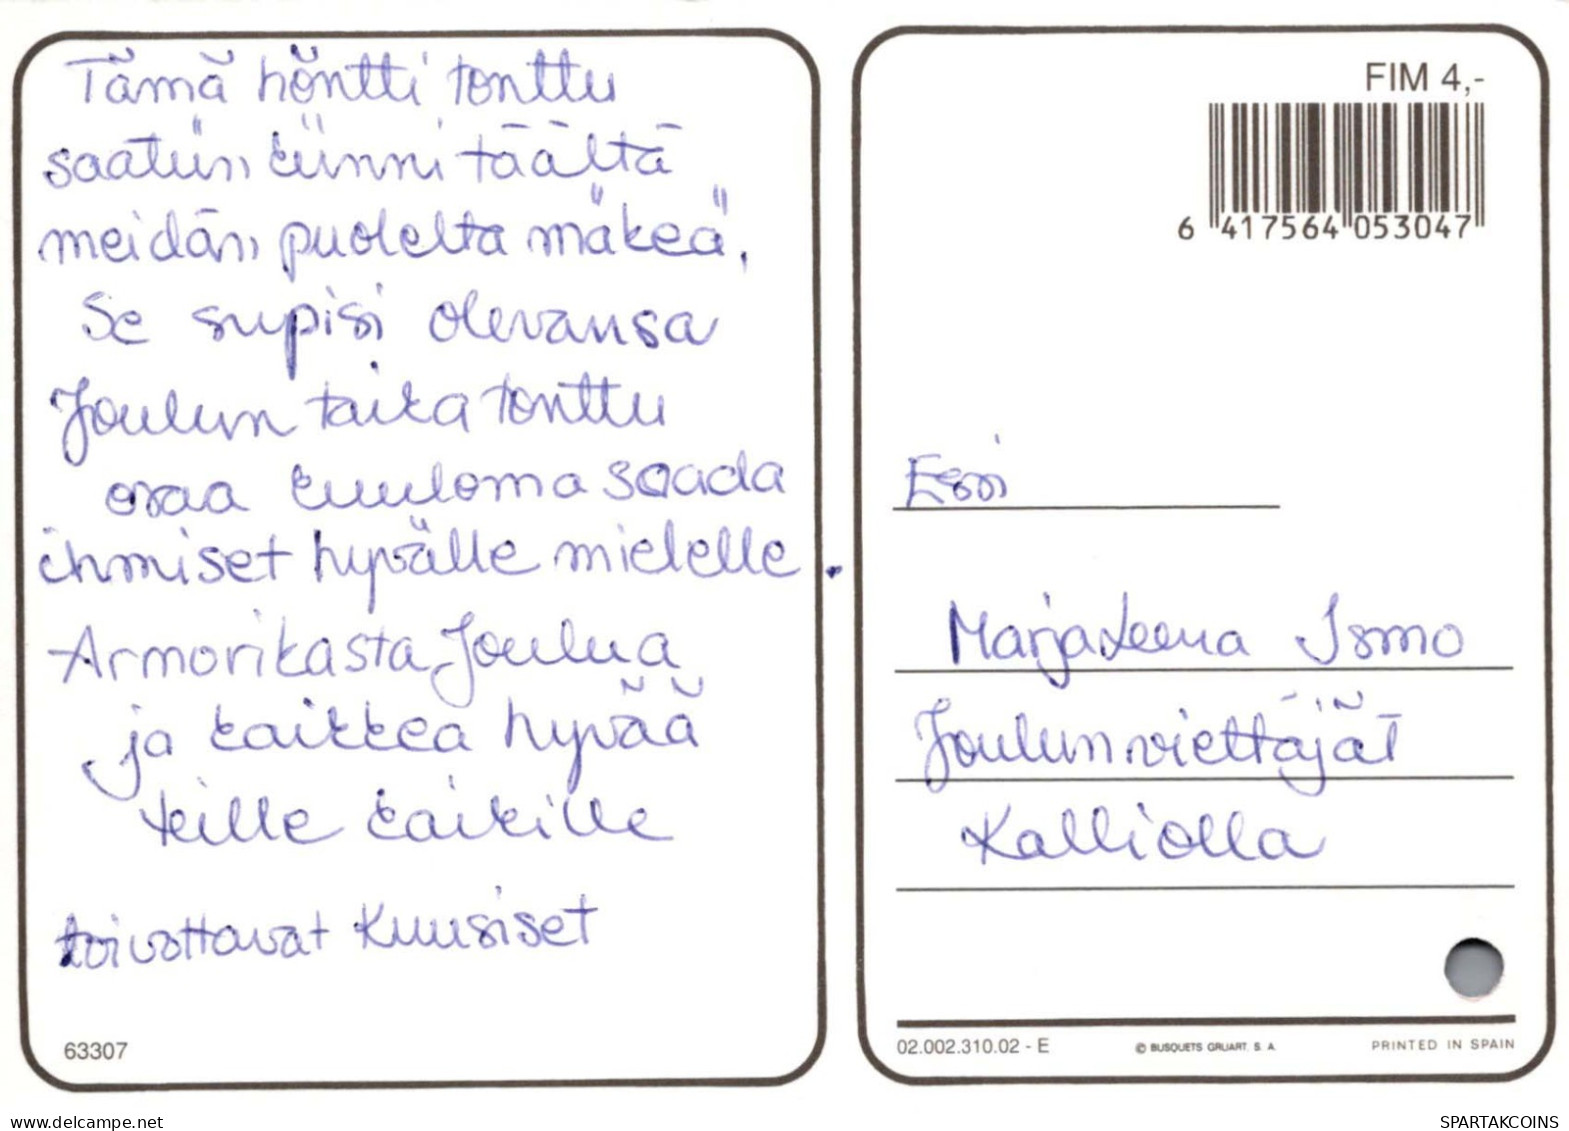 Tämä höntti tonttu
saatiin kiinni täältä
meidän puolelta mäkeä.
Se supisi olevansa
Joulun taika tonttu
osaa kuuloma saada
ihmiset hyvälle mielelle.
Armorikasta Joulua
ja kaikkea hyvää
teille kaikille
toivottavat Kuusiset
63307
FIM 4,-
6 417564 053047
Essi
Marja Leena Ismo
Joulun viettäjät
Kalliolla
02.002.310.02 - E
© BUSQUETS GRUART. S. A.
PRINTED IN SPAIN
delcampe.net
SPARTAKCOINS